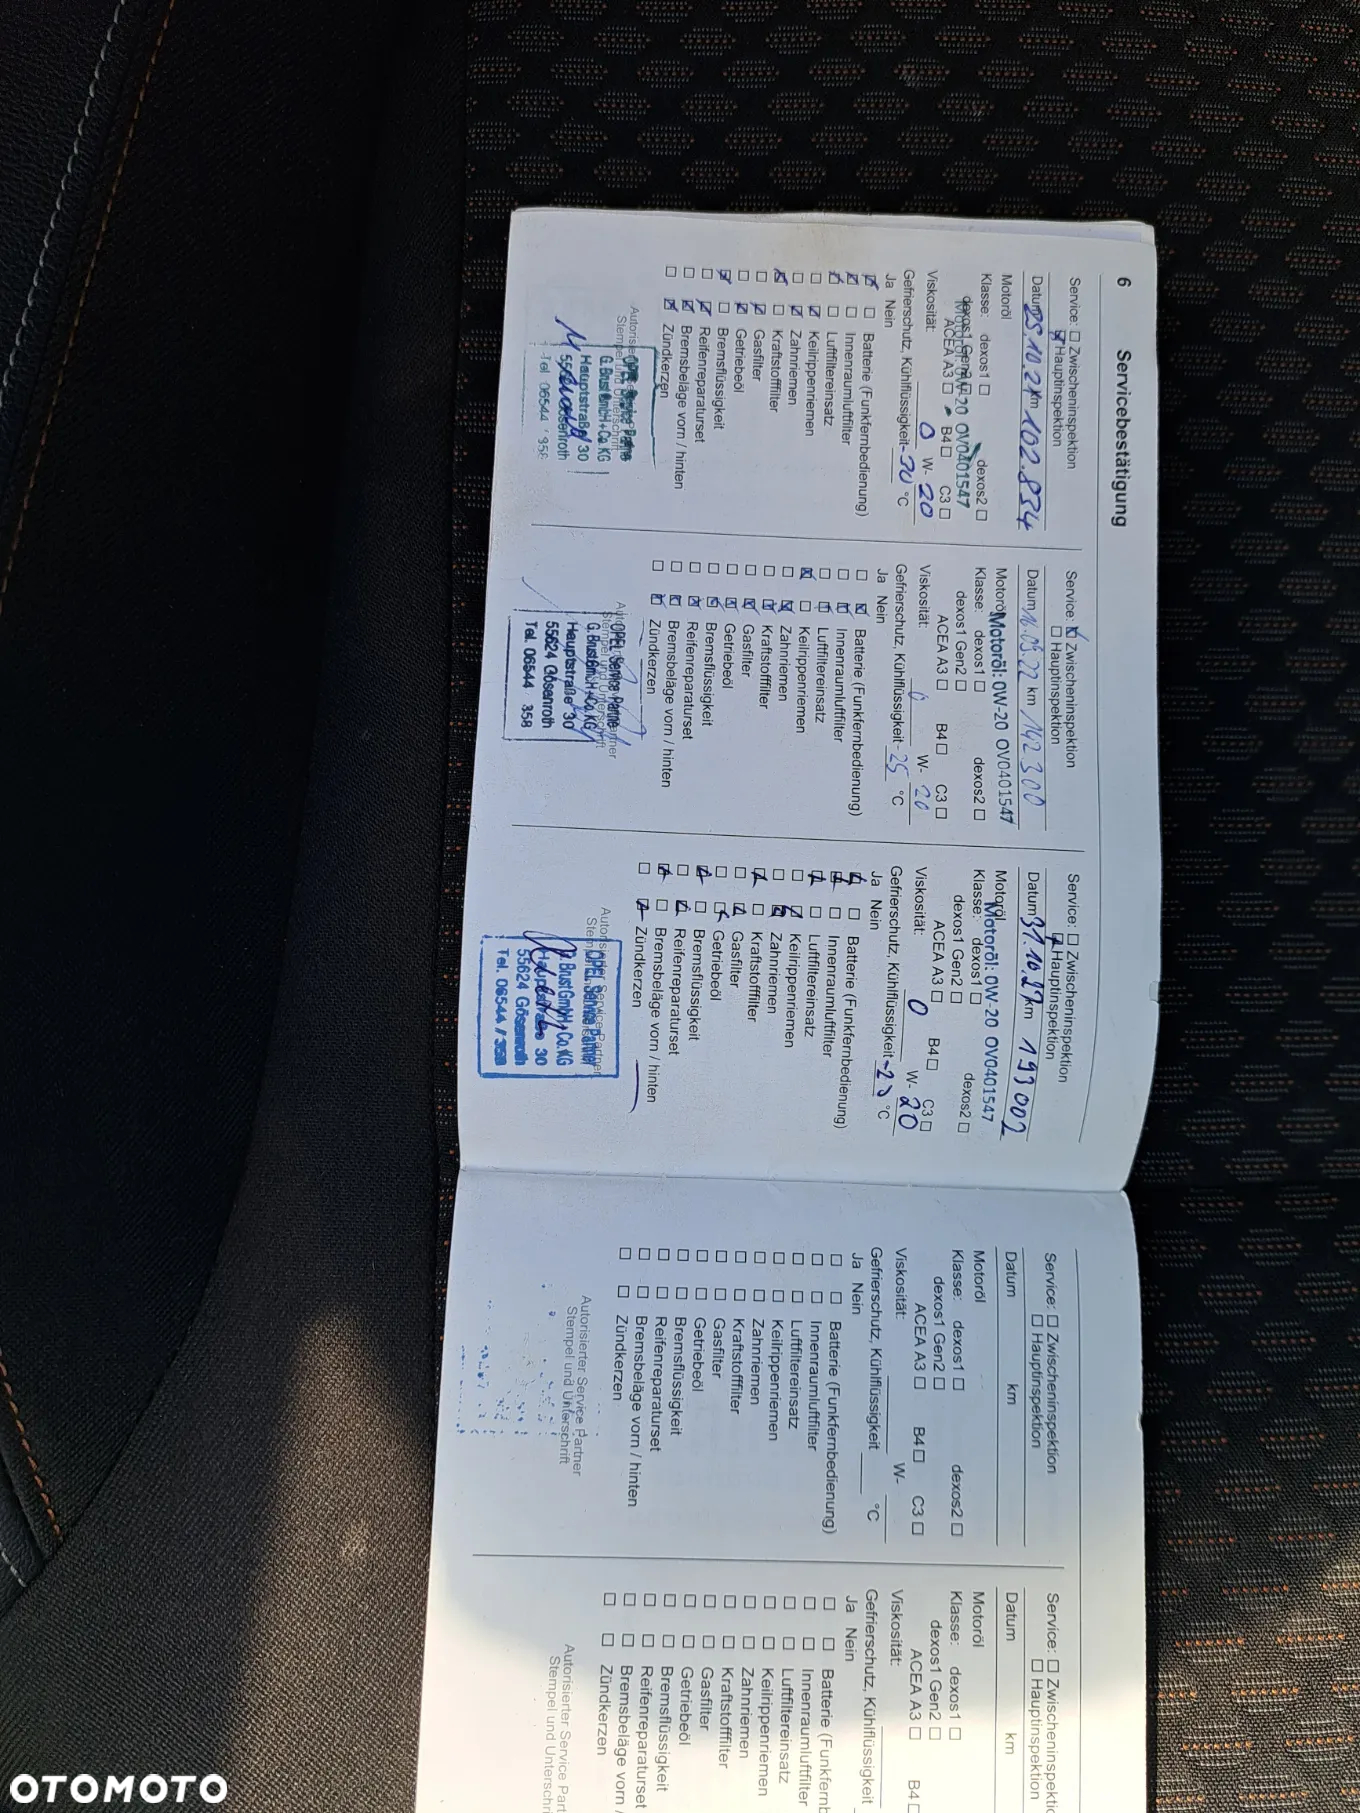 6 Servicebestätigung
Service: Zwischeninspektion
Hauptinspektion
Datum 25.10.21 km 102.834
Motoröl
Klasse: dexos1 dexos2
dexos1 Gen2
Motoröl: 0W-20 OV0401547
ACEA A3 B4 C3
Viskosität: 0 W- 20
Gefrierschutz, Kühlflüssigkeit -30 °C
Ja Nein
Batterie (Funkfernbedienung)
Innenraumluftfilter
Luftfiltereinsatz
Keilrippenriemen
Zahnriemen
Kraftstofffilter
Gasfilter
Getriebeöl
Bremsflüssigkeit
Reifenreparaturset
Bremsbeläge vorn / hinten
Zündkerzen
Stempel und Unterschrift
OPEL Service Partner
G. Brust GmbH + Co. KG
Hauptstraße 30
Gösenroth
Tel. 06544 / 358
Service: Zwischeninspektion
Hauptinspektion
Datum 16.05.22 km 142300
Motoröl Motoröl: 0W-20 OV0401547
Klasse: dexos1 dexos2
dexos1 Gen2
ACEA A3 B4 C3
Viskosität: 0 W- 20
Gefrierschutz, Kühlflüssigkeit -25 °C
Ja Nein
Batterie (Funkfernbedienung)
Innenraumluftfilter
Luftfiltereinsatz
Keilrippenriemen
Zahnriemen
Kraftstofffilter
Gasfilter
Getriebeöl
Bremsflüssigkeit
Reifenreparaturset
Bremsbeläge vorn / hinten
Zündkerzen
Stempel und Unterschrift
OPEL Service Partner
G. Brust GmbH + Co. KG
Hauptstraße 30
55624 Gösenroth
Tel. 06544 358
Service: Zwischeninspektion
Hauptinspektion
Datum 31.10. km 193002
Motoröl
Motoröl: 0W-20 OV0401547
Klasse: dexos1 dexos2
dexos1 Gen2
ACEA A3 B4 C3
Viskosität: 0 W- 20
Gefrierschutz, Kühlflüssigkeit °C
Ja Nein
Batterie (Funkfernbedienung)
Innenraumluftfilter
Luftfiltereinsatz
Keilrippenriemen
Zahnriemen
Kraftstofffilter
Gasfilter
Getriebeöl
Bremsflüssigkeit
Reifenreparaturset
Bremsbeläge vorn / hinten
Zündkerzen
Autorisierter Service Partner
OPEL Service Partner
G. Brust GmbH + Co. KG
Hauptstraße 30
55624 Gösenroth
Tel. 06544 / 358
Service: Zwischeninspektion
Hauptinspektion
Datum km
Motoröl
Klasse: dexos1 dexos2
dexos1 Gen2
ACEA A3 B4 C3
Viskosität: W-
Gefrierschutz, Kühlflüssigkeit °C
Ja Nein
Batterie (Funkfernbedienung)
Innenraumluftfilter
Luftfiltereinsatz
Keilrippenriemen
Zahnriemen
Kraftstofffilter
Gasfilter
Getriebeöl
Bremsflüssigkeit
Reifenreparaturset
Bremsbeläge vorn / hinten
Zündkerzen
Autorisierter Service Partner
Stempel und Unterschrift
Service: Zwischeninspektic
Hauptinspektion
Datum km
Motoröl
Klasse: dexos1
dexos1 Gen2
ACEA A3 B4
Viskosität:
Gefrierschutz, Kühlflüssigkeit
Ja Nein
Batterie (Funkfernb
Innenraumluftfilter
Luftfiltereinsatz
Keilrippenriemen
Zahnriemen
Kraftstofffilter
Gasfilter
Getriebeöl
Bremsflüssigkeit
Reifenreparaturset
Bremsbeläge vorn /
Zündkerzen
Autorisierter Service Part
Stempel und Unterschri
OTOMOTO